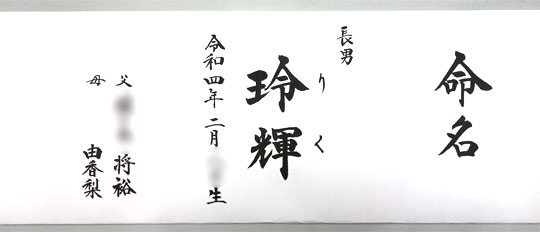 命名
長男
玲輝
りく
令和四年二月 生
父 将裕
母 由香梨